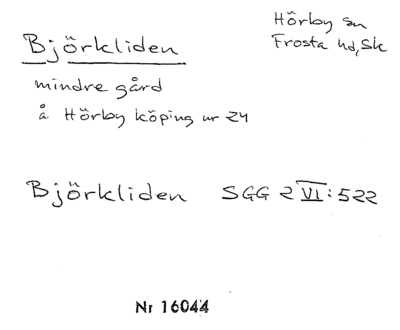 Björkliden
Hörby sn
Frosta hd, Sk
mindre gård
å Hörby köping nr 24
Björkliden SGG 2 VI:522
Nr 16044